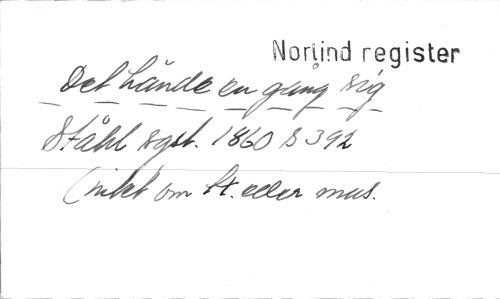 Norlind register
Det hände en gång sig
Ståhl rgst. 1860 S 392
(intet om tt. eller mus.